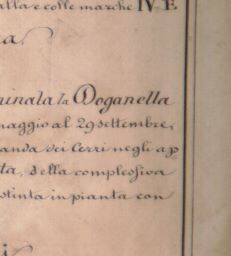 alla e colle marche IV. E.
a.
minata la Doganella
maggio al 29 settembre,
anda dei Cerri negli ap
ta, della complessiva
stinta in pianta con